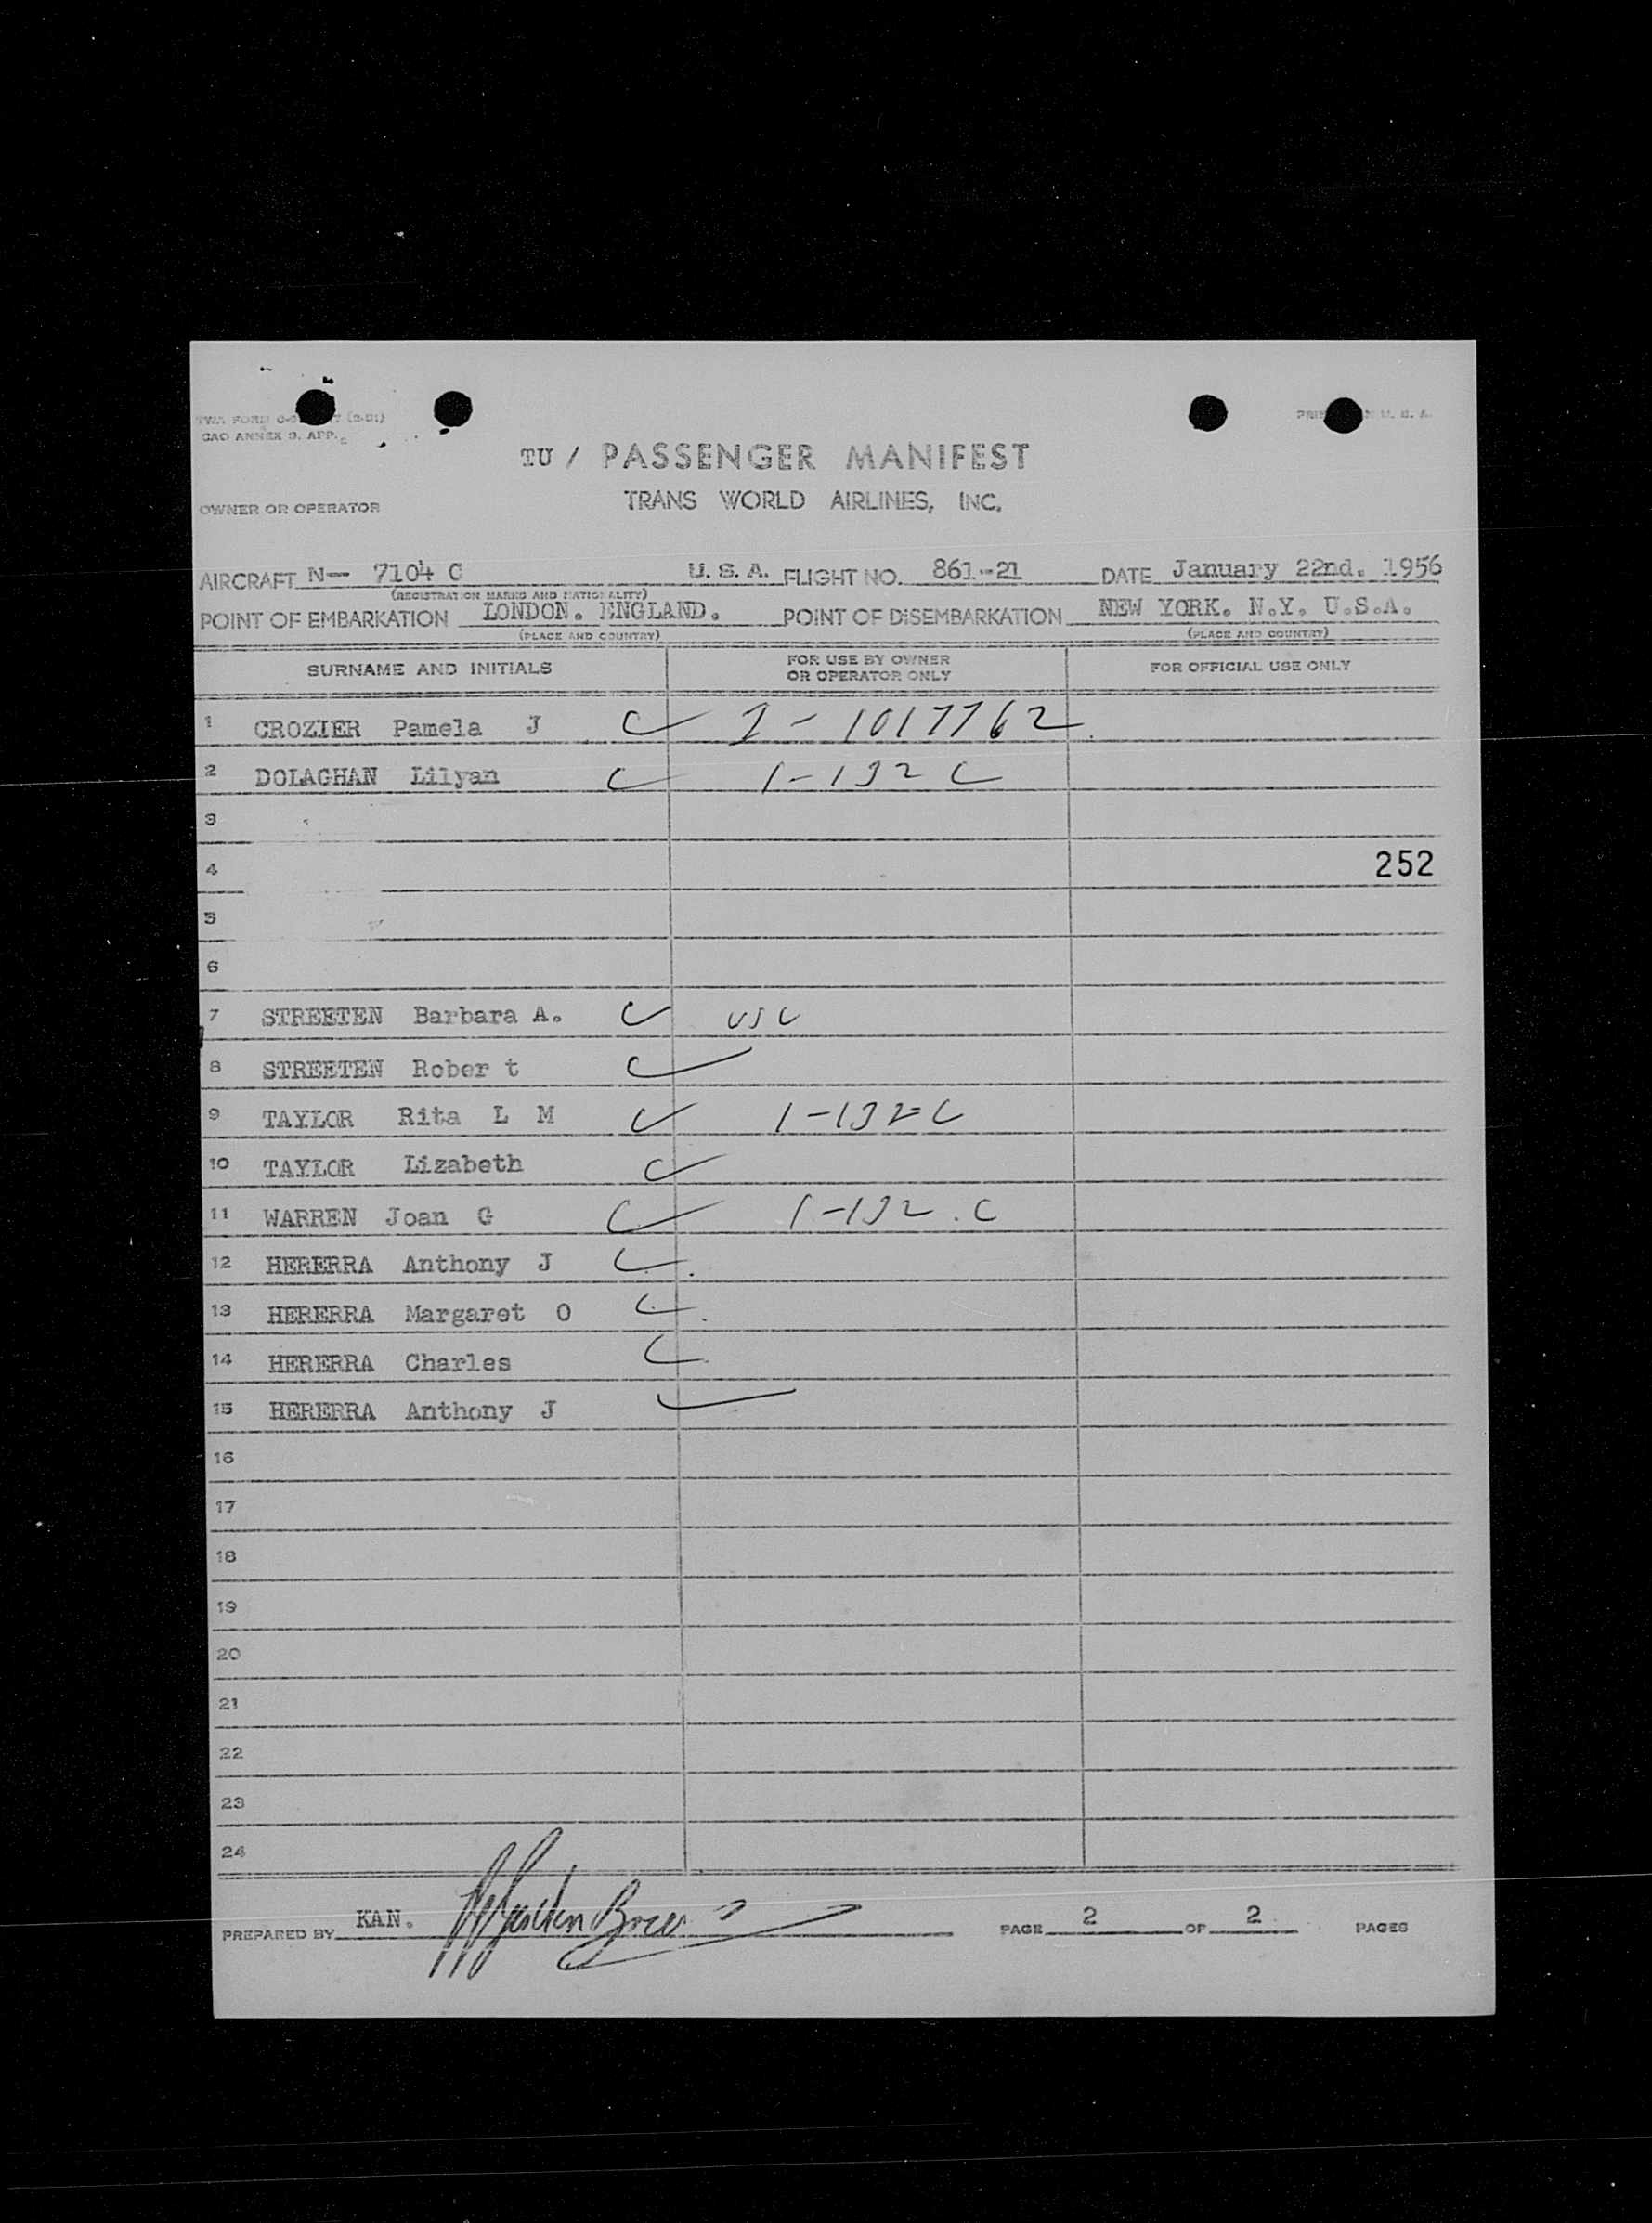 CAO ANNEX 9, APP.
TU / PASSENGER MANIFEST
OWNER OR OPERATOR TRANS WORLD AIRLINES, INC.
AIRCRAFT N- 7104 C U. S. A. FLIGHT NO. 861-21 DATE January 22nd. 1956
(REGISTRATION MARKS AND NATIONALITY)
POINT OF EMBARKATION LONDON. ENGLAND. POINT OF DISEMBARKATION NEW YORK. N.Y. U.S.A.
(PLACE AND COUNTRY) (PLACE AND COUNTRY)
SURNAME AND INITIALS FOR USE BY OWNER OR OPERATOR ONLY FOR OFFICIAL USE ONLY
1 CROZIER Pamela J I - 1017762
2 DOLAGHAN Lilyan 1-132 C
3
4 252
5
6
7 STREETEN Barbara A. USC
8 STREETEN Rober t
9 TAYLOR Rita L M 1-132 C
10 TAYLOR Lizabeth
11 WARREN Joan G 1-132 . C
12 HERERRA Anthony J
13 HERERRA Margaret O
14 HERERRA Charles
15 HERERRA Anthony J
16
17
18
19
20
21
22
23
24
PREPARED BY KAN. PAGE 2 OF 2 PAGES